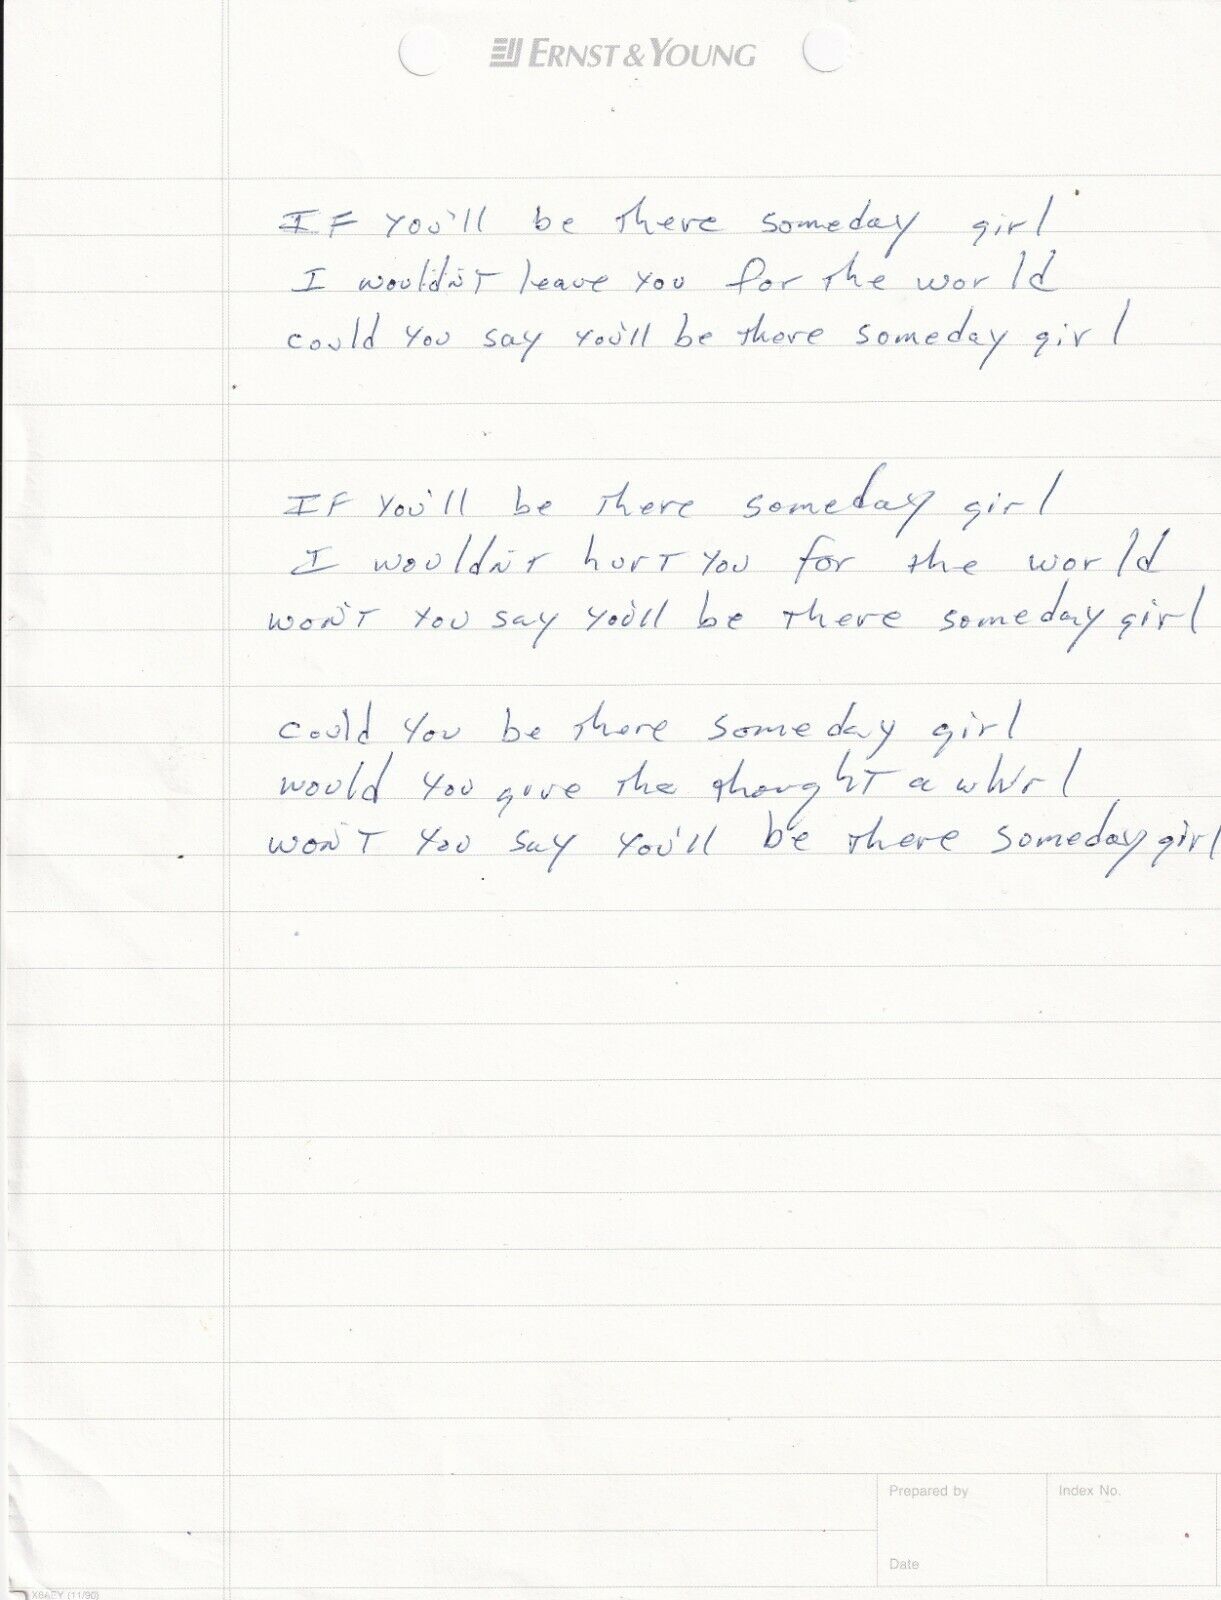 ERNST & YOUNG
IF you'll be there someday girl
I wouldn't leave you for the world
could you say you'll be there someday girl
IF you'll be there someday girl
I wouldn't hurt you for the world
won't you say you'll be there someday girl
could you be there someday girl
would you give the thought a whirl
won't you say you'll be there someday girl
Prepared by
Index No.
Date
X6AEY (11/90)